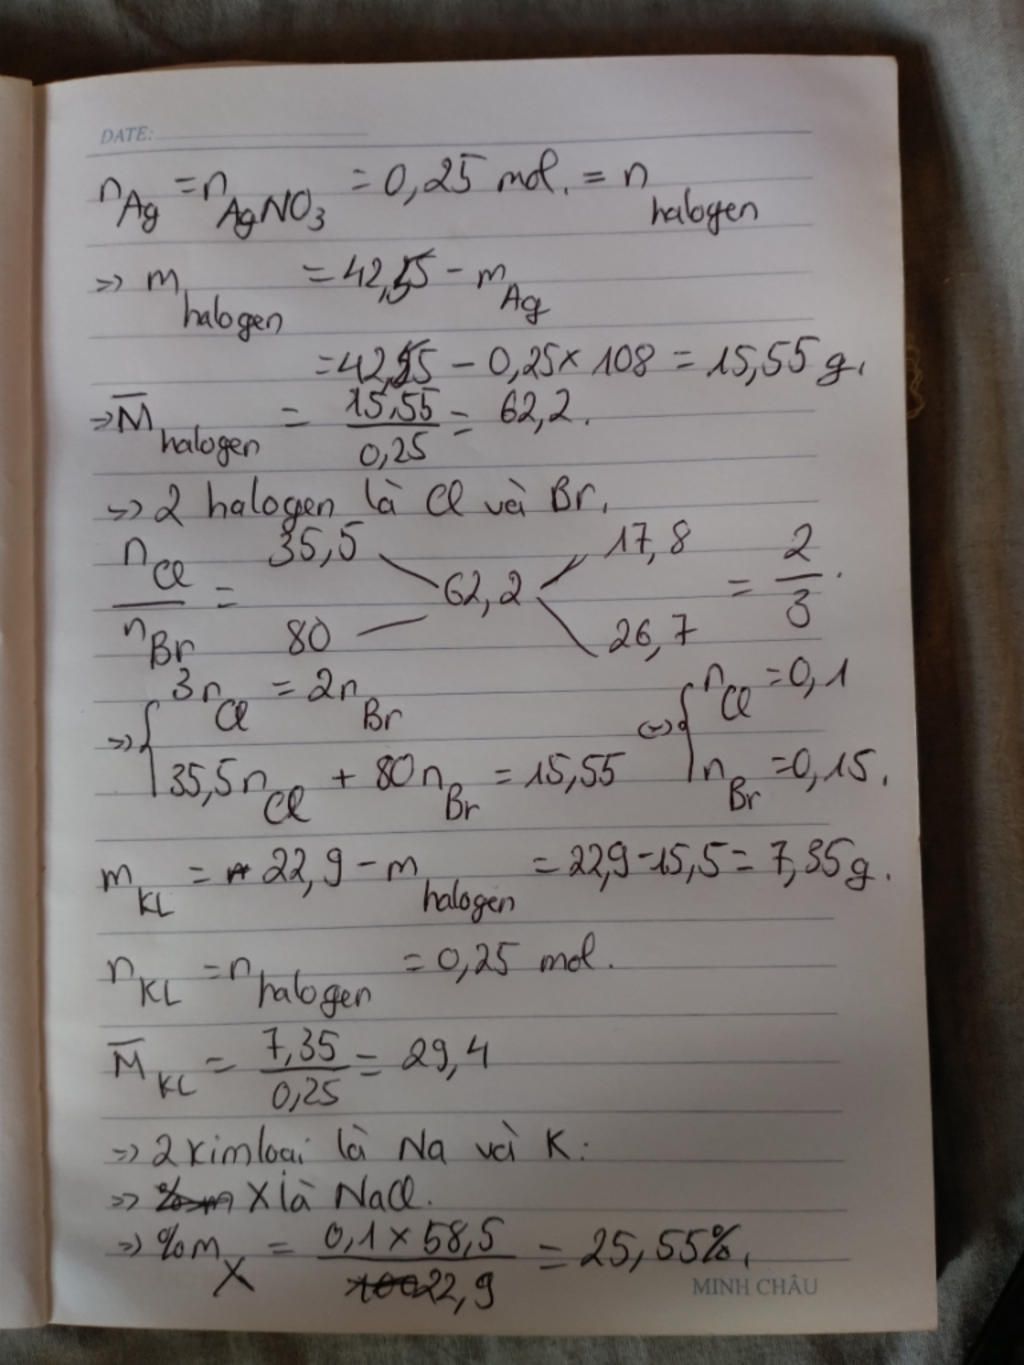 DATE:
n Ag = n AgNO3 = 0,25 mol. = n halogen
=> m halogen = 42,55 - m Ag
= 42,55 - 0,25 × 108 = 15,55 g.
=> M̄ halogen = 15,55 / 0,25 = 62,2.
=> 2 halogen là Cl và Br.
n Cl / n Br = 35,5 80 62,2 17,8 26,7 = 2/3.
=> { 3n Cl = 2n Br <=> { n Cl = 0,1
35,5n Cl + 80n Br = 15,55 n Br = 0,15.
m KL = 22,9 - m halogen = 22,9 - 15,5 = 7,35 g.
n KL = n halogen = 0,25 mol.
M̄ KL = 7,35 / 0,25 = 29,4
=> 2 kim loại là Na và K.
=> X là NaCl.
=> %m X = 0,1 × 58,5 / 22,9 = 25,55%.
MINH CHÂU